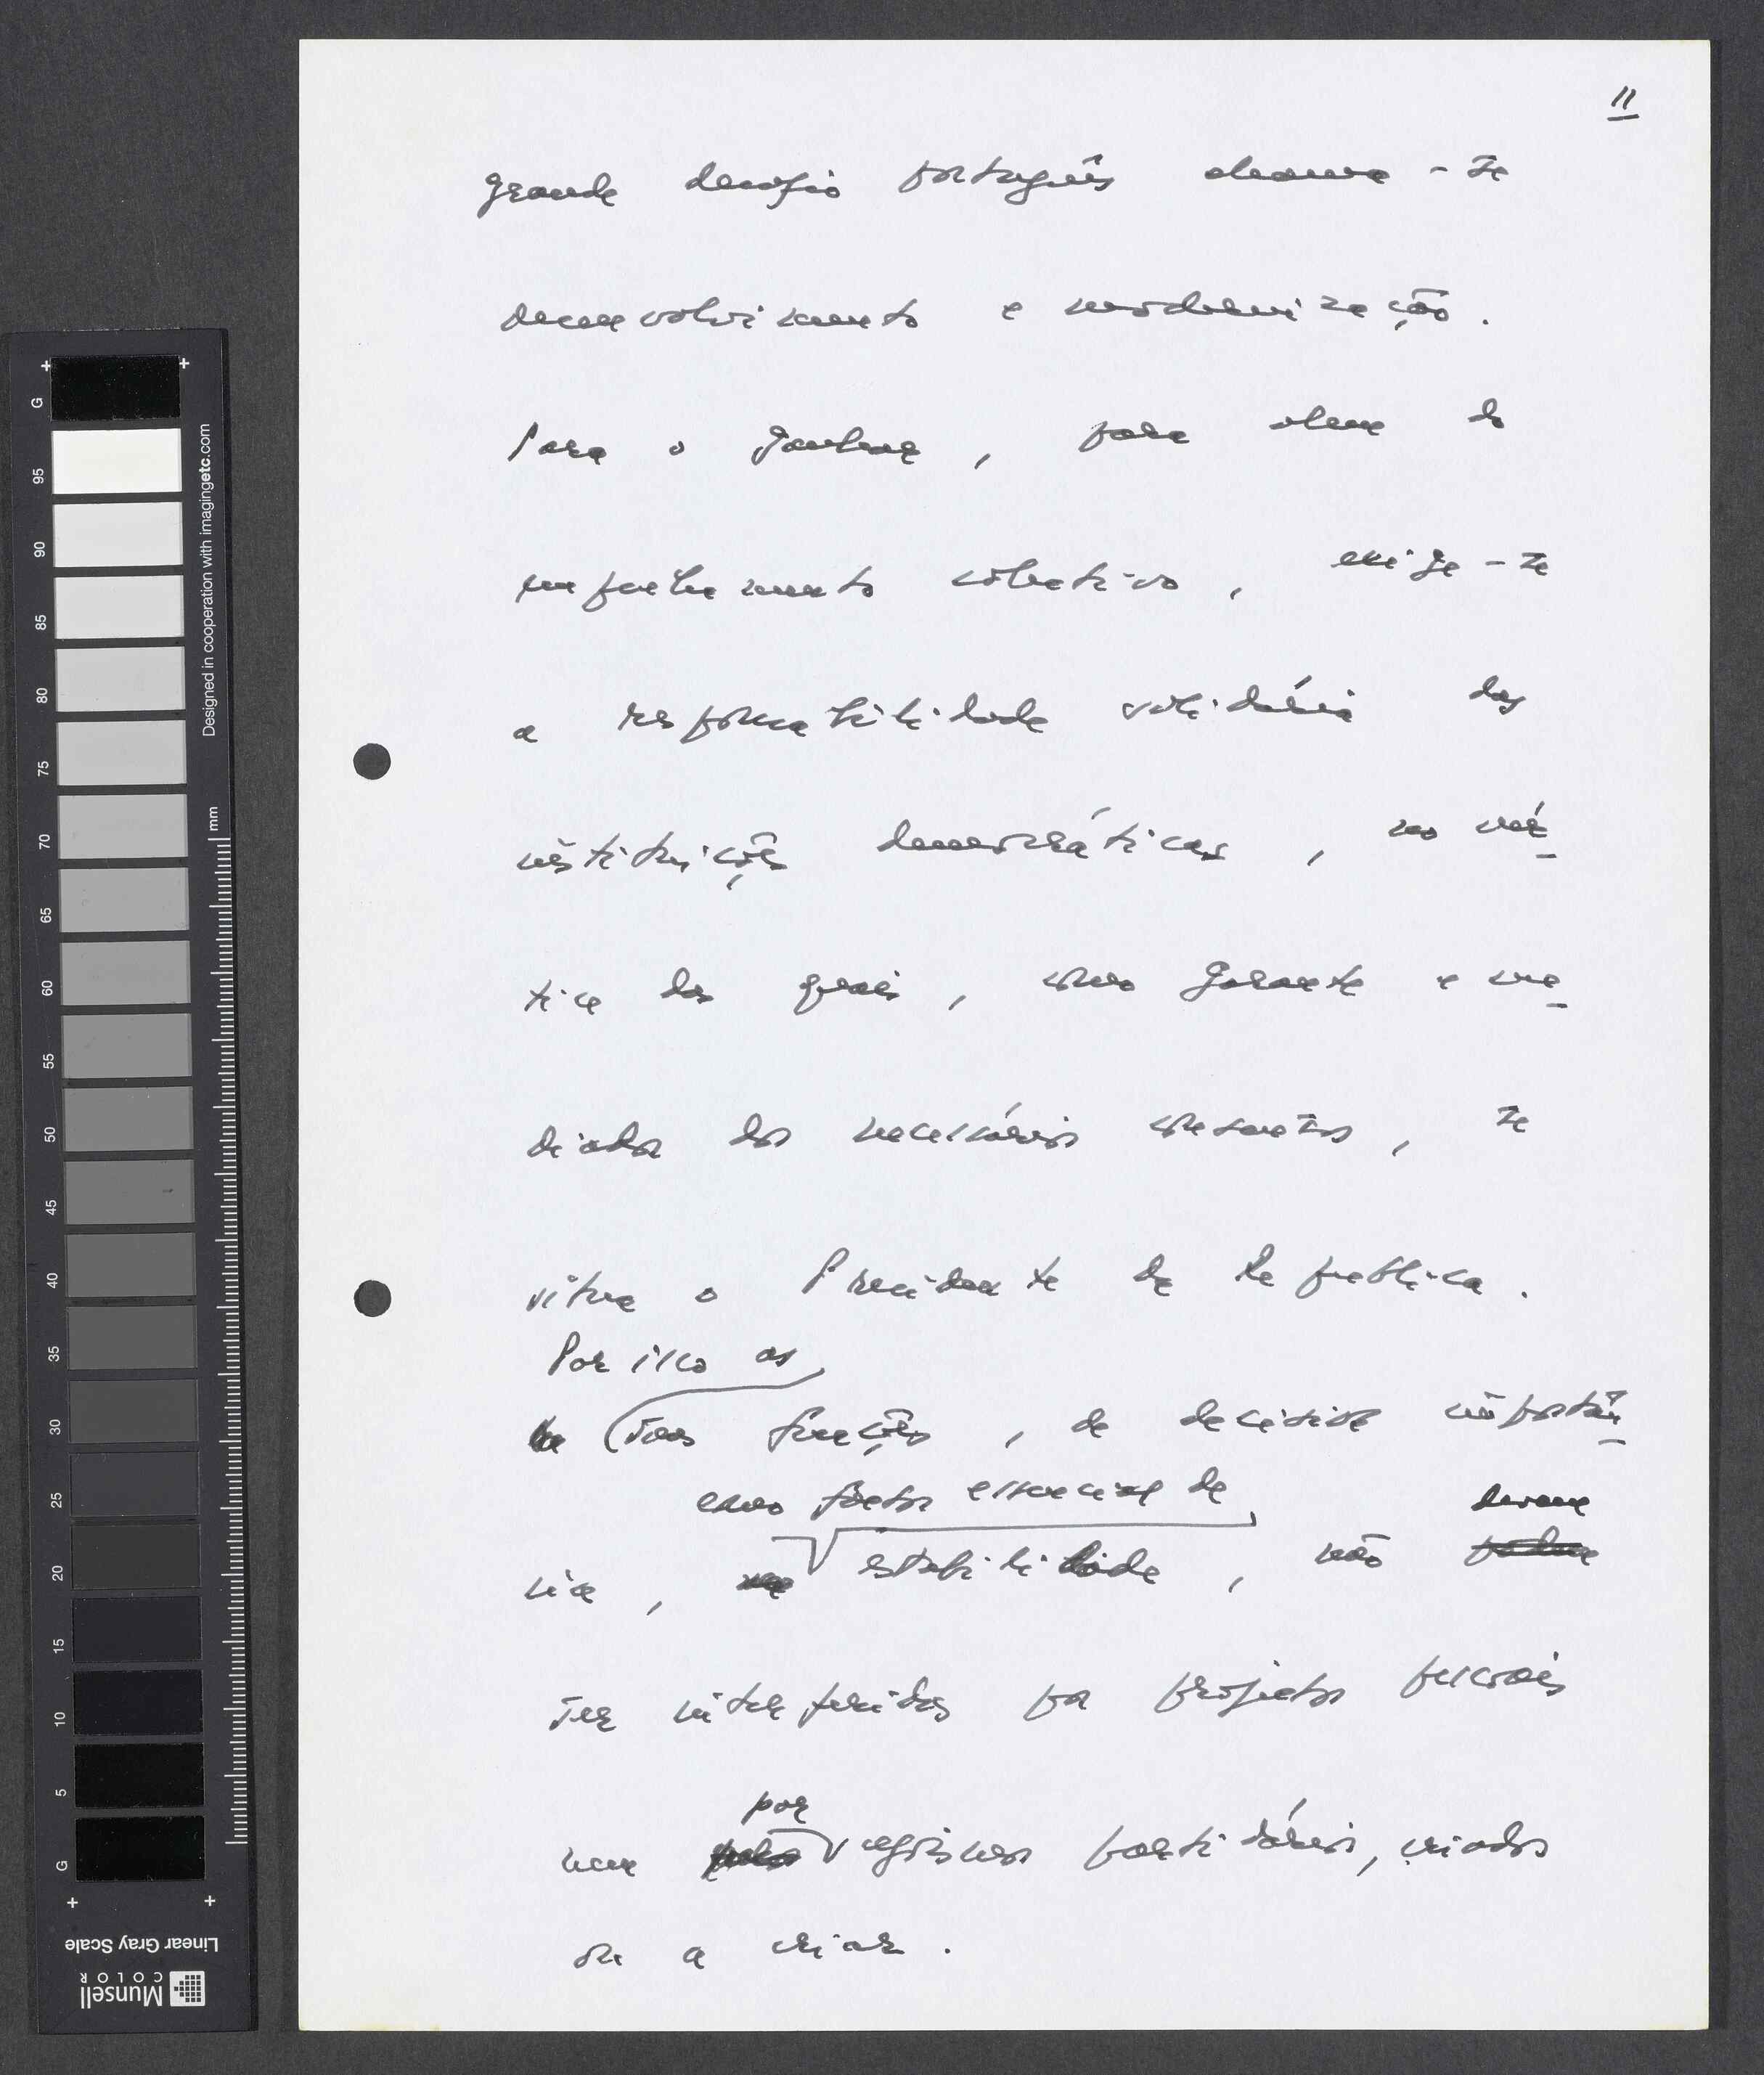 11
grande desafio português chama-se
desenvolvimento e modernização.
Para o ganhar, para além do
empenhamento colectivo, exige-se
a responsabilidade solidária das
instituições democráticas, no vér-
tice das quais, como garante e me-
diador dos necessários consensos, se
situa o Presidente da República.
Por isso as
suas funções, de decisiva importân-
como factor essencial de
devem
cia, estabilidade, não podem
ser interferidas por projectos pessoais
por
nem pelos egoísmos partidários, criados
ou a criar.
G
95
90
85
80
75
70
65
60
55
50
45
40
35
30
25
20
15
10
5
G
mm
Designed in cooperation with imagingetc.com
Linear Gray Scale
Munsell
COLOR